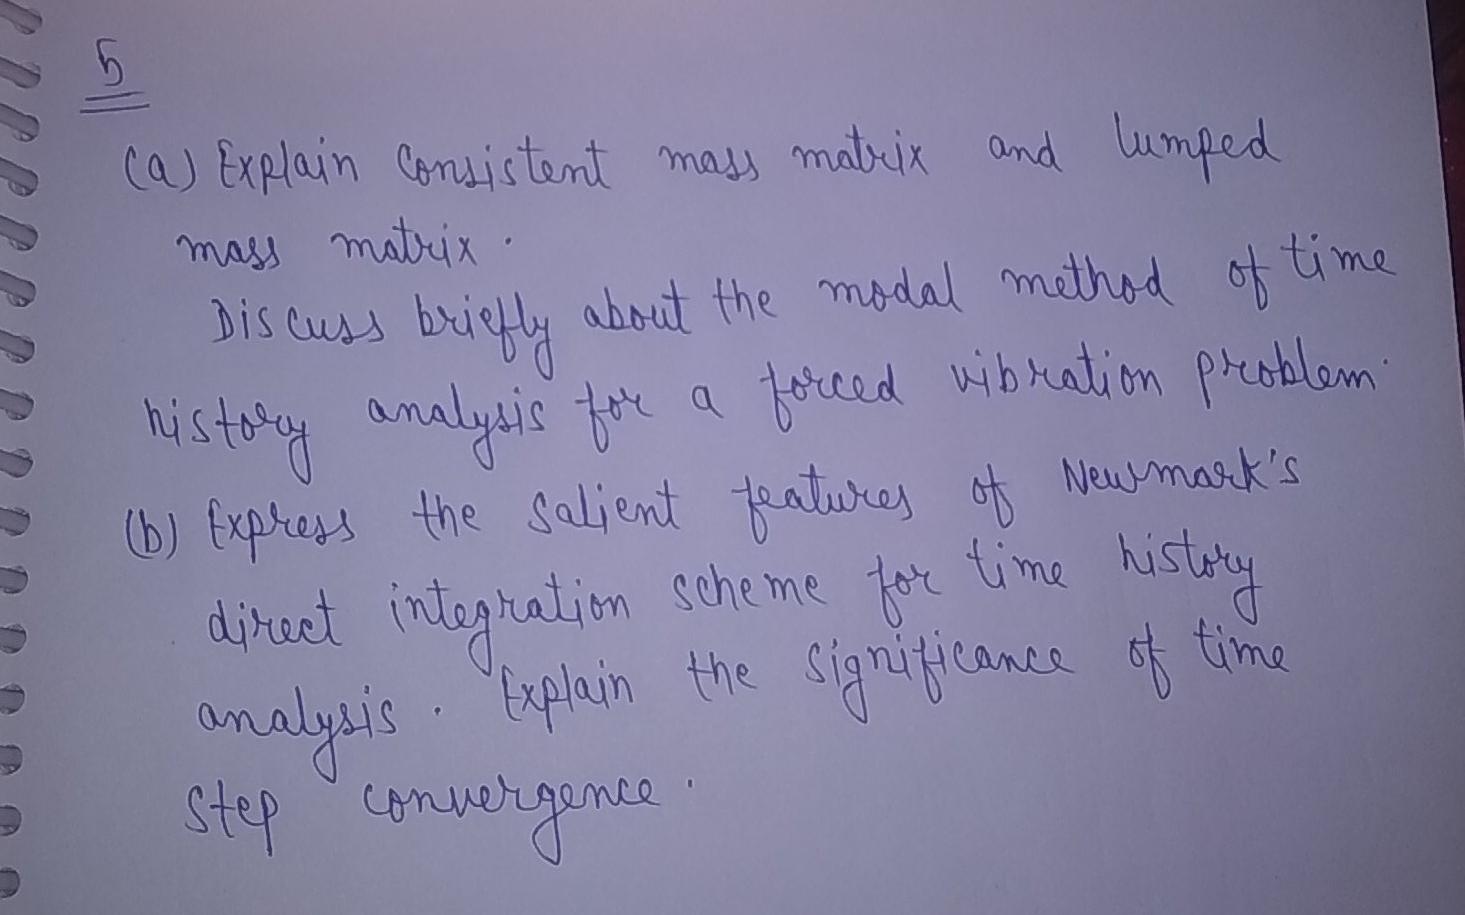 5
(a) Explain Consistent mass matrix and lumped
mass matrix.
Discuss briefly about the modal method of time
history analysis for a forced vibration problem.
(b) Express the salient features of Newmark's
direct integration scheme for time history
analysis. Explain the significance of time
step convergence.